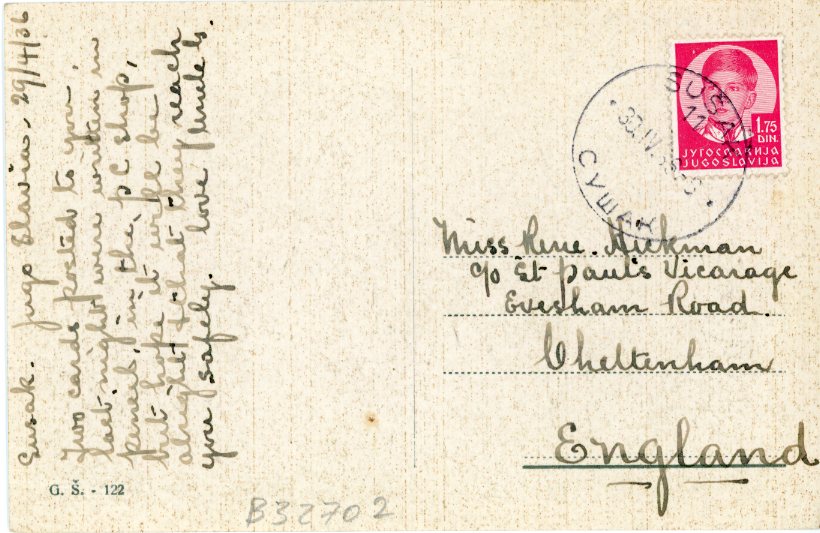 Susak. Jugo Slavia. 29/4/36
Two cards posted to you
last night were written in
pencil, in the pc shop,
but hope it will be
alright & that they reach
you safely. love Uncle S.
G. Š. - 122
B32702
SUŠAK
11
СУШАК
1.75
DIN.
ЈУГОСЛАВИЈА
JUGOSLAVIJA
Miss Rene. Hickman
c/o St pauls Vicarage
Evesham Road.
Cheltenham
England